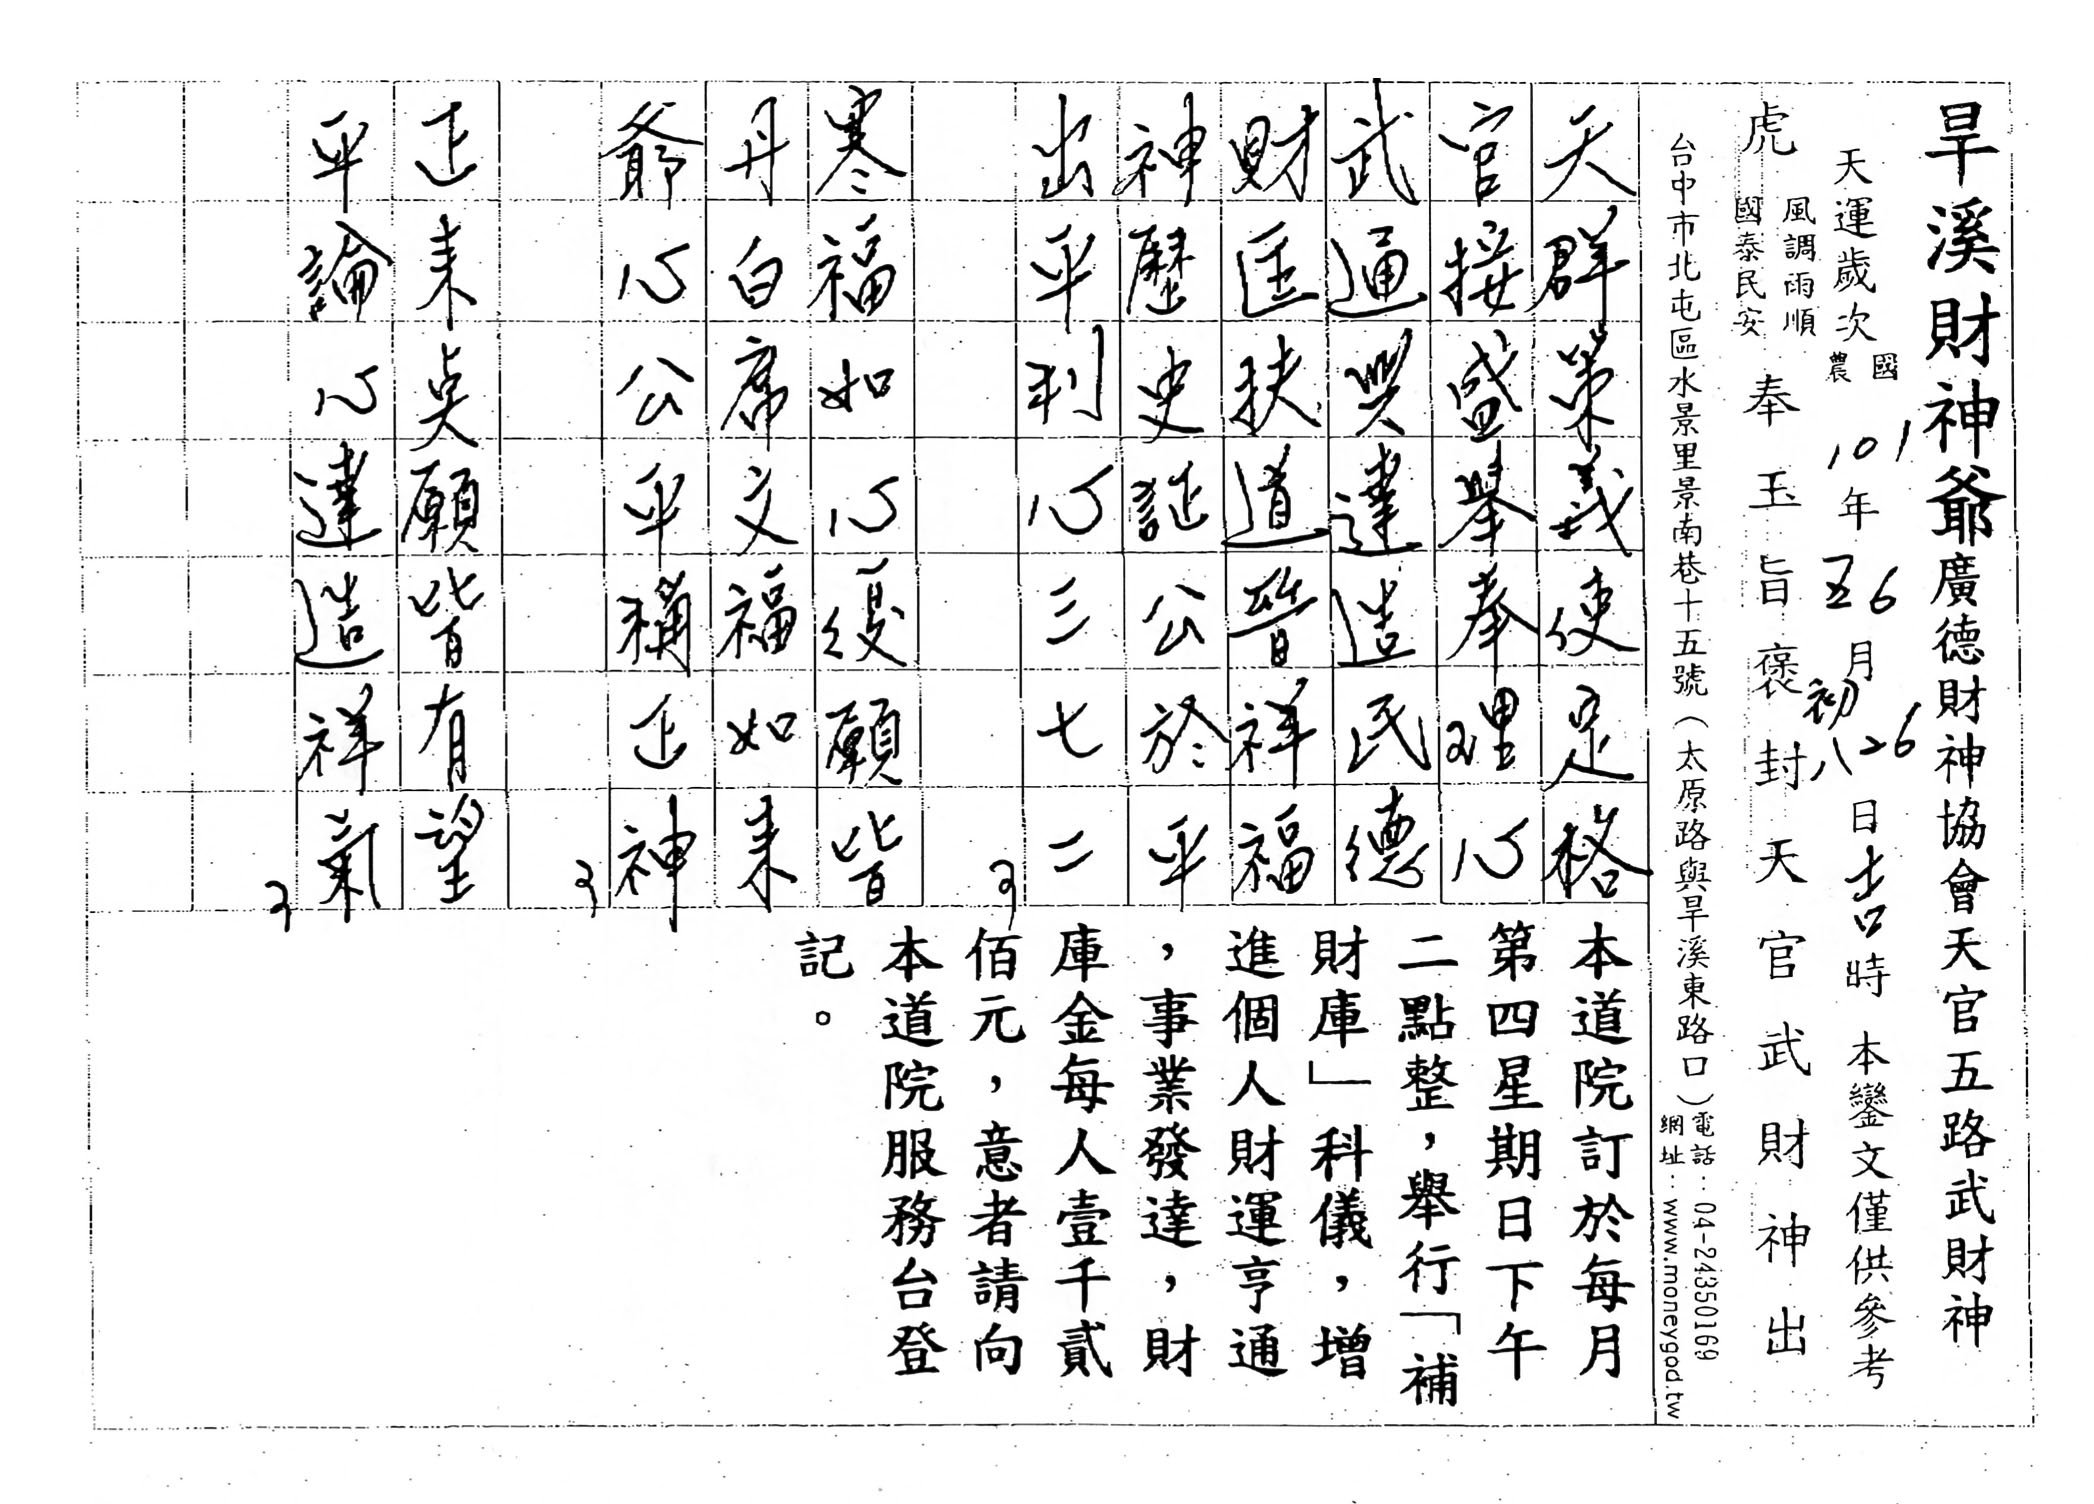 旱溪財神爺廣德財神協會天官五路武財神
天運歲次 國農 101年 五6月 初八26日吉時 本鑾文僅供參考
虎 風調雨順 國泰民安 奉玉旨褒封天官武財神出
台中市北屯區水景里景南巷十五號（太原路與旱溪東路口）電話：04-24350169
網址：www.moneygod.tw
天群策義使足格
官接盛舉奉理心
武通興達造民德
財匡扶道晉祥福
神歷史誕公於平
出平利心三七二
寒福如心優願皆
丹白席文福如來
爺心公平稱正神
正來吳願皆有望
平論心達造祥氣
本道院訂於每月
第四星期日下午
二點整，舉行「補
財庫」科儀，增
進個人財運亨通
，事業發達，財
庫金每人壹千貳
佰元，意者請向
本道院服務台登
記。